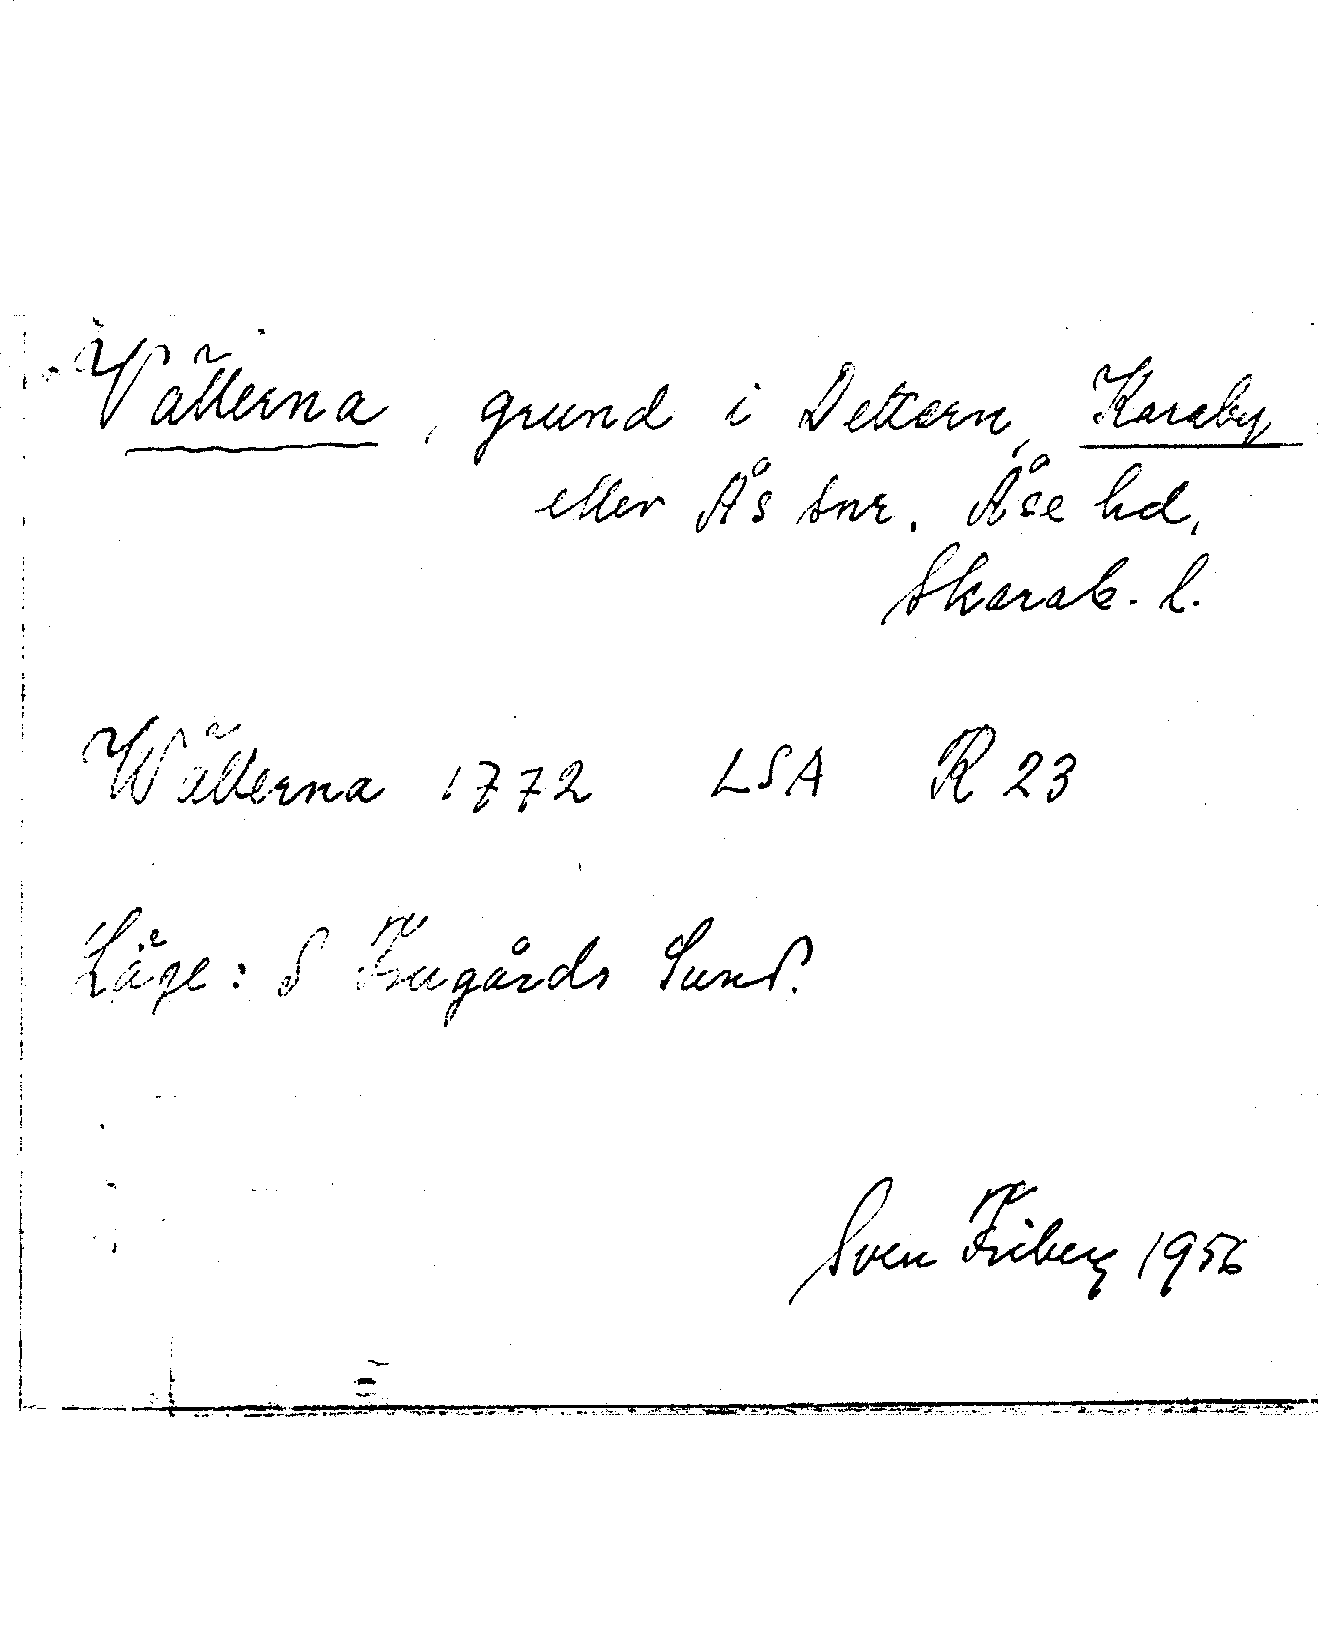 Vällerna, grund i Dettern, Karaby
eller Ås snr. Åse hd,
Skarab. l.
Wällerna 1772 LSA R 23
Läge: S Frugårds Sund.
Sven Friberg 1956